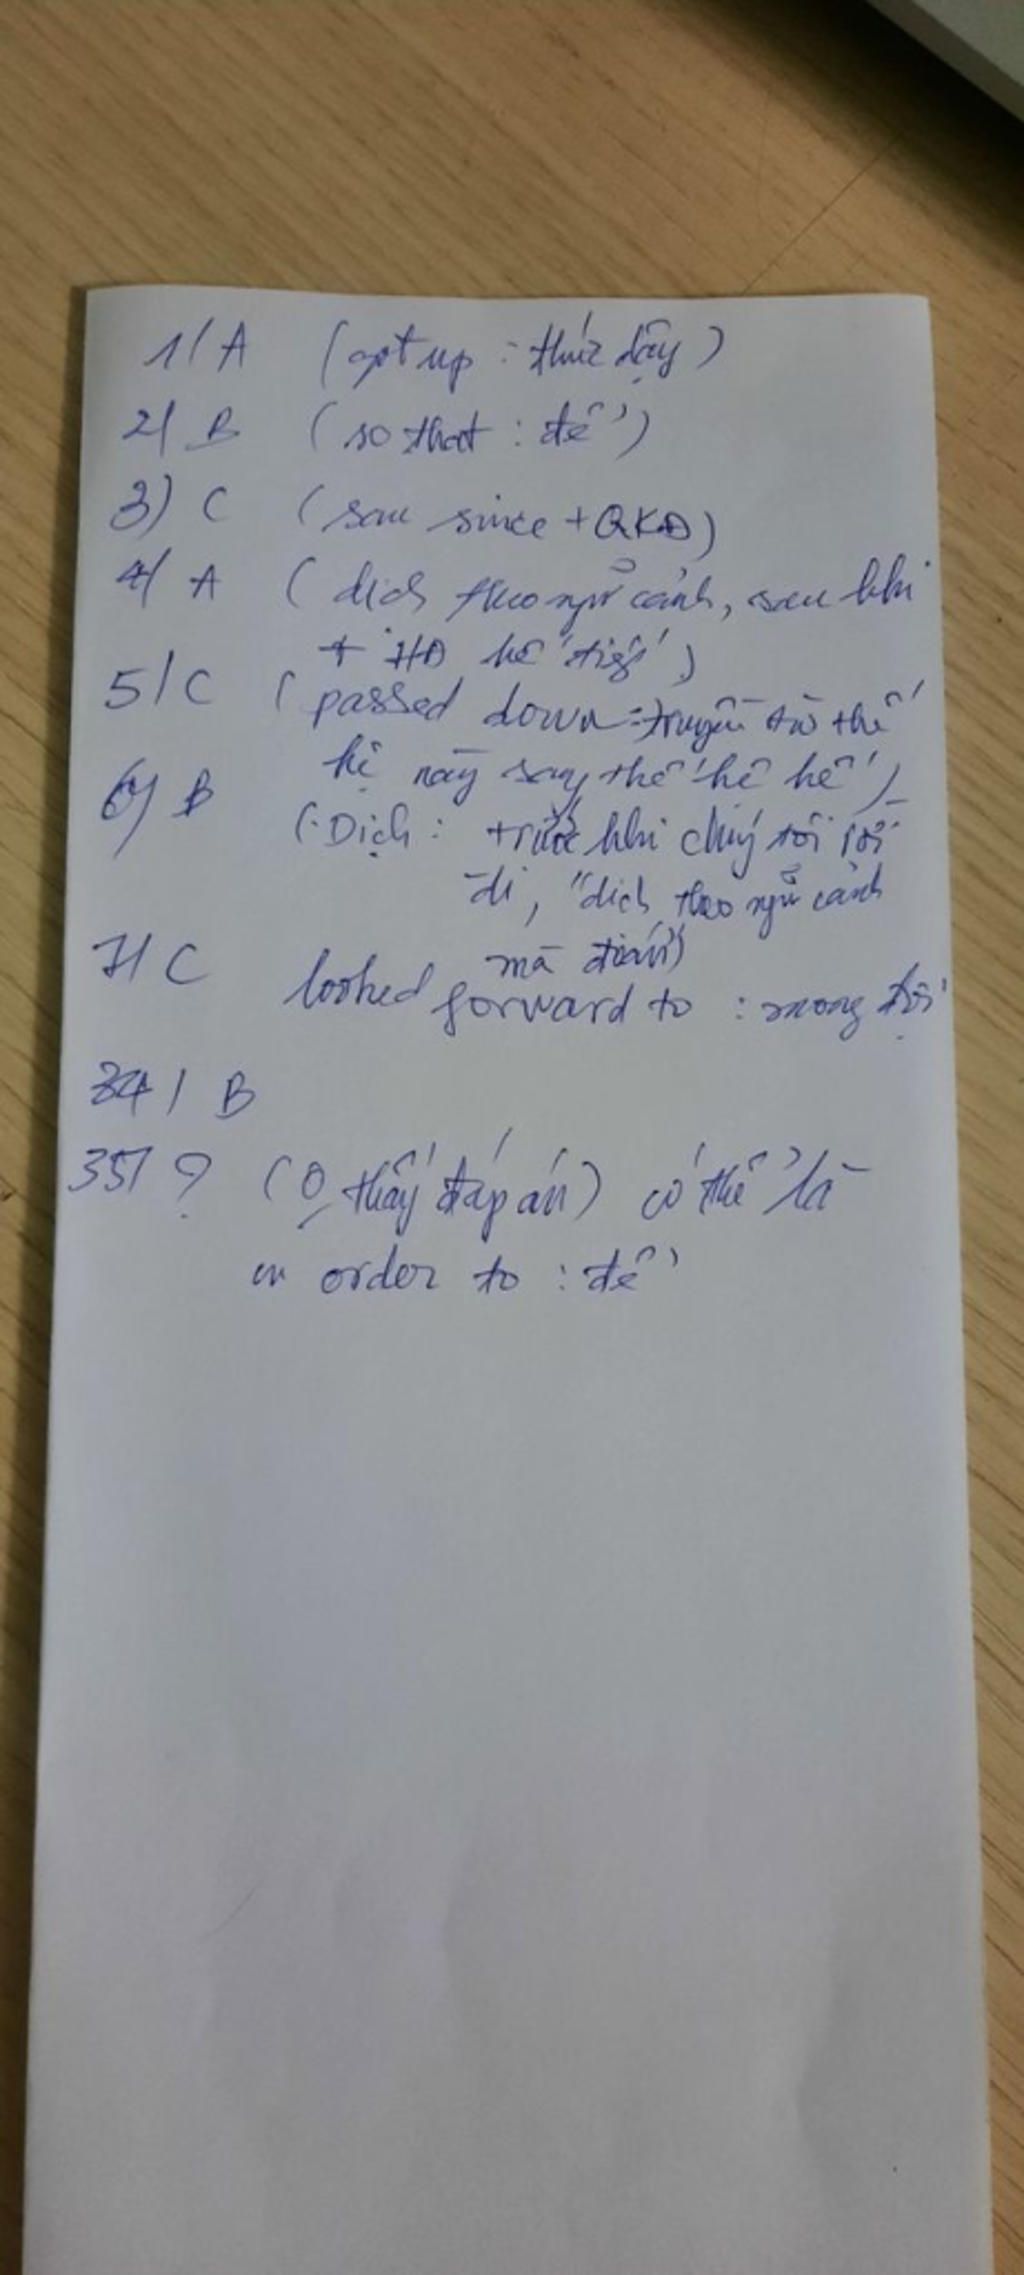 1/ A (got up : thức dậy)
2/ B (so that : để)
3) C (sau since + QKĐ)
4/ A (dịch theo ngữ cảnh, sau khi
+ HĐ kế tiếp)
5/ C (passed down : truyền từ thế
hệ này sang thế hệ kế)
6/ B (Dịch : trước khi chúng tôi rời
đi, "dịch theo ngữ cảnh
mà đoán")
7/ C looked forward to : mong đợi
34/ B
35/ ? (O thấy đáp án) có thể là
in order to : để